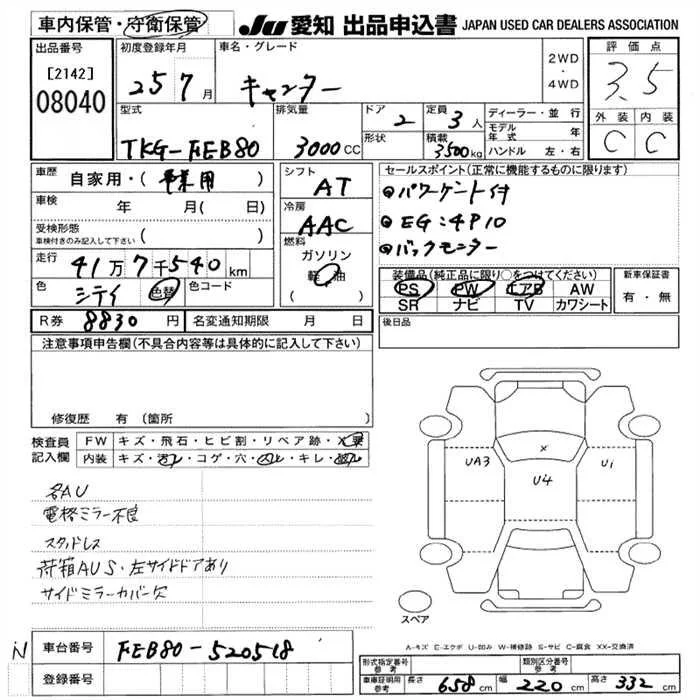 車内保管・守衛保管
JU 愛知 出品申込書 JAPAN USED CAR DEALERS ASSOCIATION
出品番号
[2142]
08040
初度登録年月
25 7月
車名・グレード
キャンター
2WD
・
4WD
評価点
3.5
外装 内装
C C
型式
TKG-FEB80
排気量
3000CC
ドア
2
形状
定員 3人
積載 3500kg
ディーラー・並行
モデル年式 年
ハンドル 左・右
車歴
自家用・(事業用)
車検 年 月( 日)
受検形態
車検付きのみ記入して下さい ( )
走行
41万7千540km
色
シテイ
色替
色コード
シフト
AT
冷房
AAC
燃料
ガソリン
軽油
( )
セールスポイント(正常に機能するものに限ります)
●パワーゲート付
●EG:4P10
●バックモニター
装備品(純正品に限り○をつけてください)
PS PW エアB AW
SR ナビ TV カワシート
新車保証書
有・無
R券 8830円
名変通知期限 月 日
後日品
注意事項申告欄(不具合内容等は具体的に記入して下さい)
修復歴 有(箇所
検査員記入欄
FW キズ・飛石・ヒビ割・リペア跡・X要
内装 キズ・・コゲ・穴・・キレ・
名AU
電格ミラー不良
スタッドレス
荷箱AUS・左サイドドアあり
サイドミラーカバー欠
UA3
X
U4
U1
スペア
A-キズ E-エクボ U-凹み W-補修跡 S-サビ C-腐食 XX-交換済
N
車台番号 FEB80-520518
登録番号
形式指定番号 参考
類別区分番号 参考
車庫証明用 参考 長さ 658cm 幅 220cm 高さ 332cm